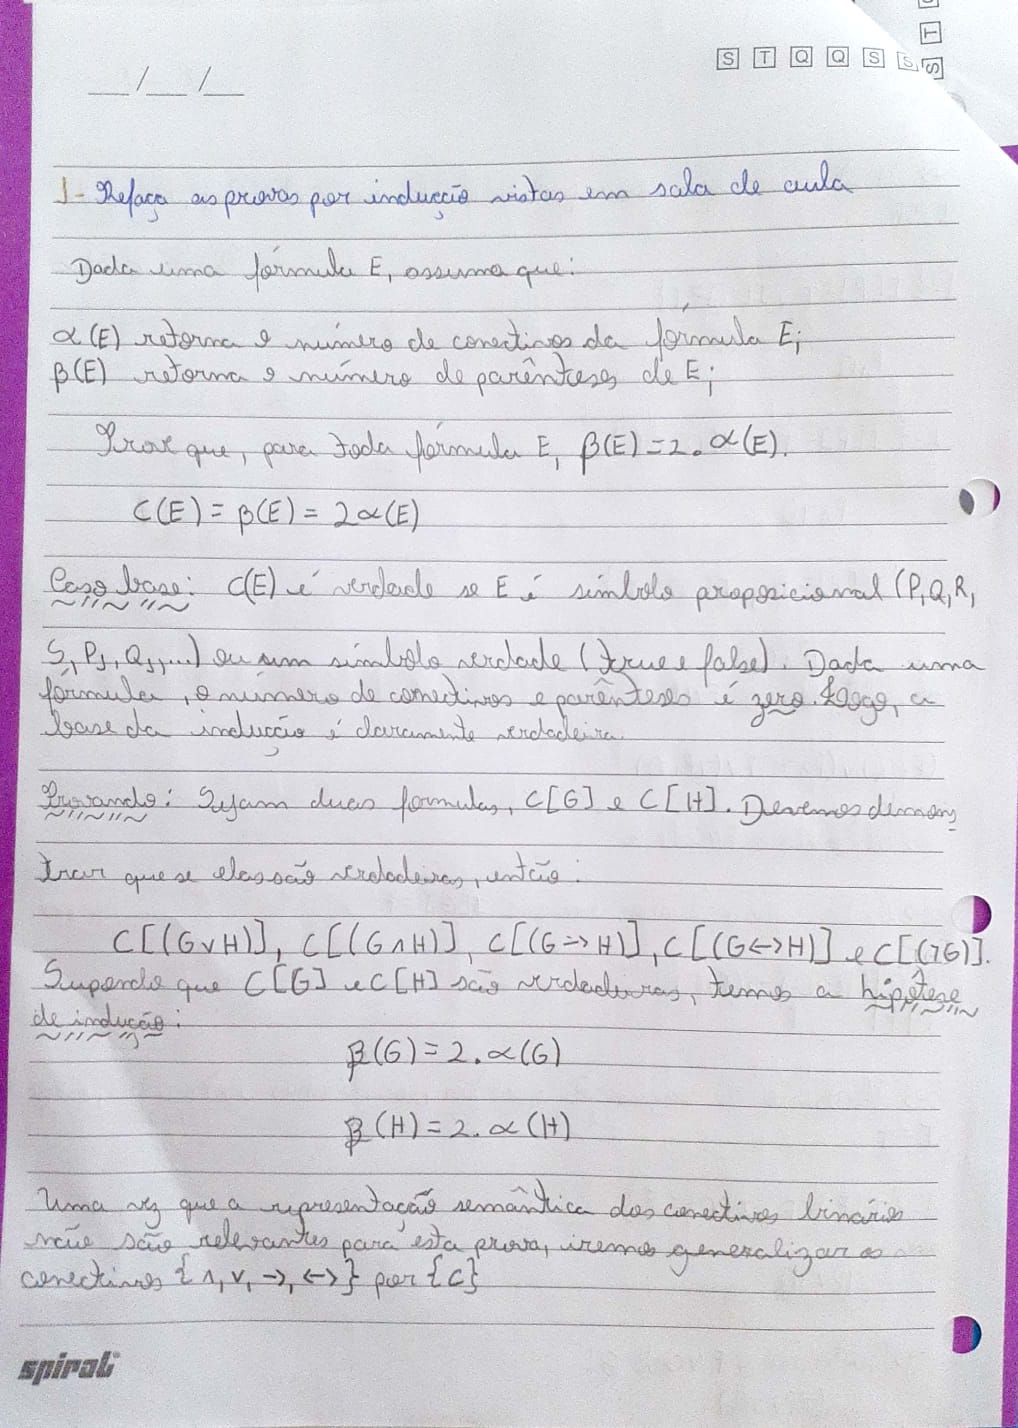 S T Q Q S S S
T
__/__/__
1- Refaça as provas por indução vistas em sala de aula
Dada uma fórmula E, assuma que:
α(E) retorna o número de conectivos da fórmula E;
β(E) retorna o número de parênteses de E;
Prove que, para toda fórmula E, β(E)=2.α(E).
C(E) = β(E) = 2α(E)
Caso base: C(E) é verdade se E é símbolo proposicional (P,Q,R,
S, P1, Q1,...) ou um símbolo verdade (true e false). Dada uma
fórmula, o número de conectivos e parênteses é zero. Logo, a
base da indução é claramente verdadeira.
Provando: Sejam duas formulas, C[G] e C[H]. Devemos demons
trar que se elas são verdadeiras, então:
C[(G∨H)], C[(G∧H)], C[(G=>H)], C[(G<->H)] e C[(¬G)].
Supondo que C[G] e C[H] são verdadeiras, temos a hipótese
de indução:
β(G) = 2.α(G)
β(H) = 2.α(H)
Uma vez que a representação semântica dos conectivos binários
não são relevantes para esta prova, iremos generalizar os
conectivos {∧,∨,->,<->} por {C}
spiral